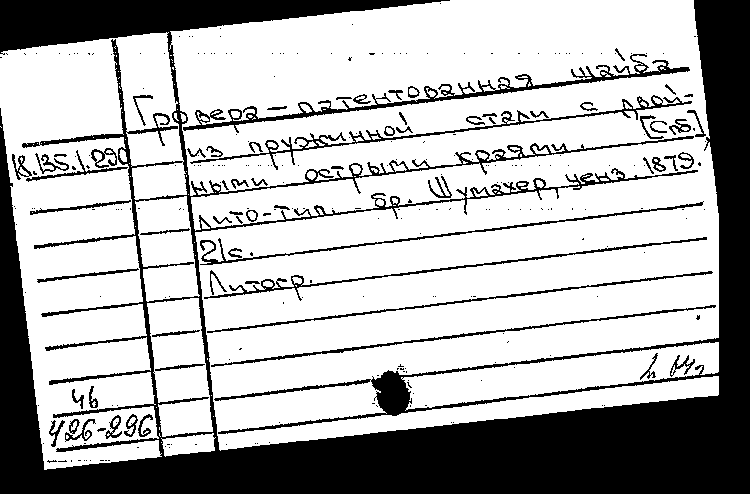 Гровера-патентованная шайба
из пружинной стали с двой-
18.135.1.290
ными острыми краями. [Спб.]
лито-тип. бр. Шумахер, ценз. 1879.
2 с.
Литогр.
46
426-296